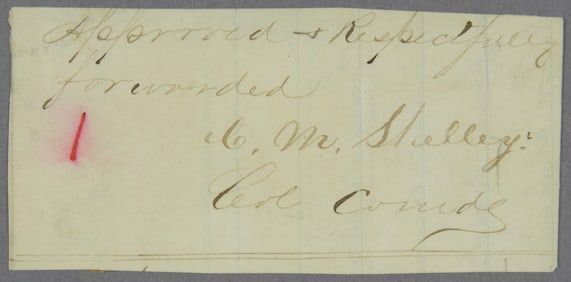 Approved & Respectfully
forwarded
1
C. M. Shelley
Col Comdg